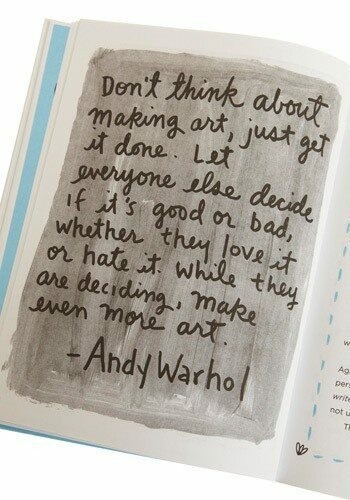 Don't think about
making art, just get
it done. Let
everyone else decide
if it's good or bad,
whether they love it
or hate it. While they
are deciding, make
even more art.
-Andy Warhol